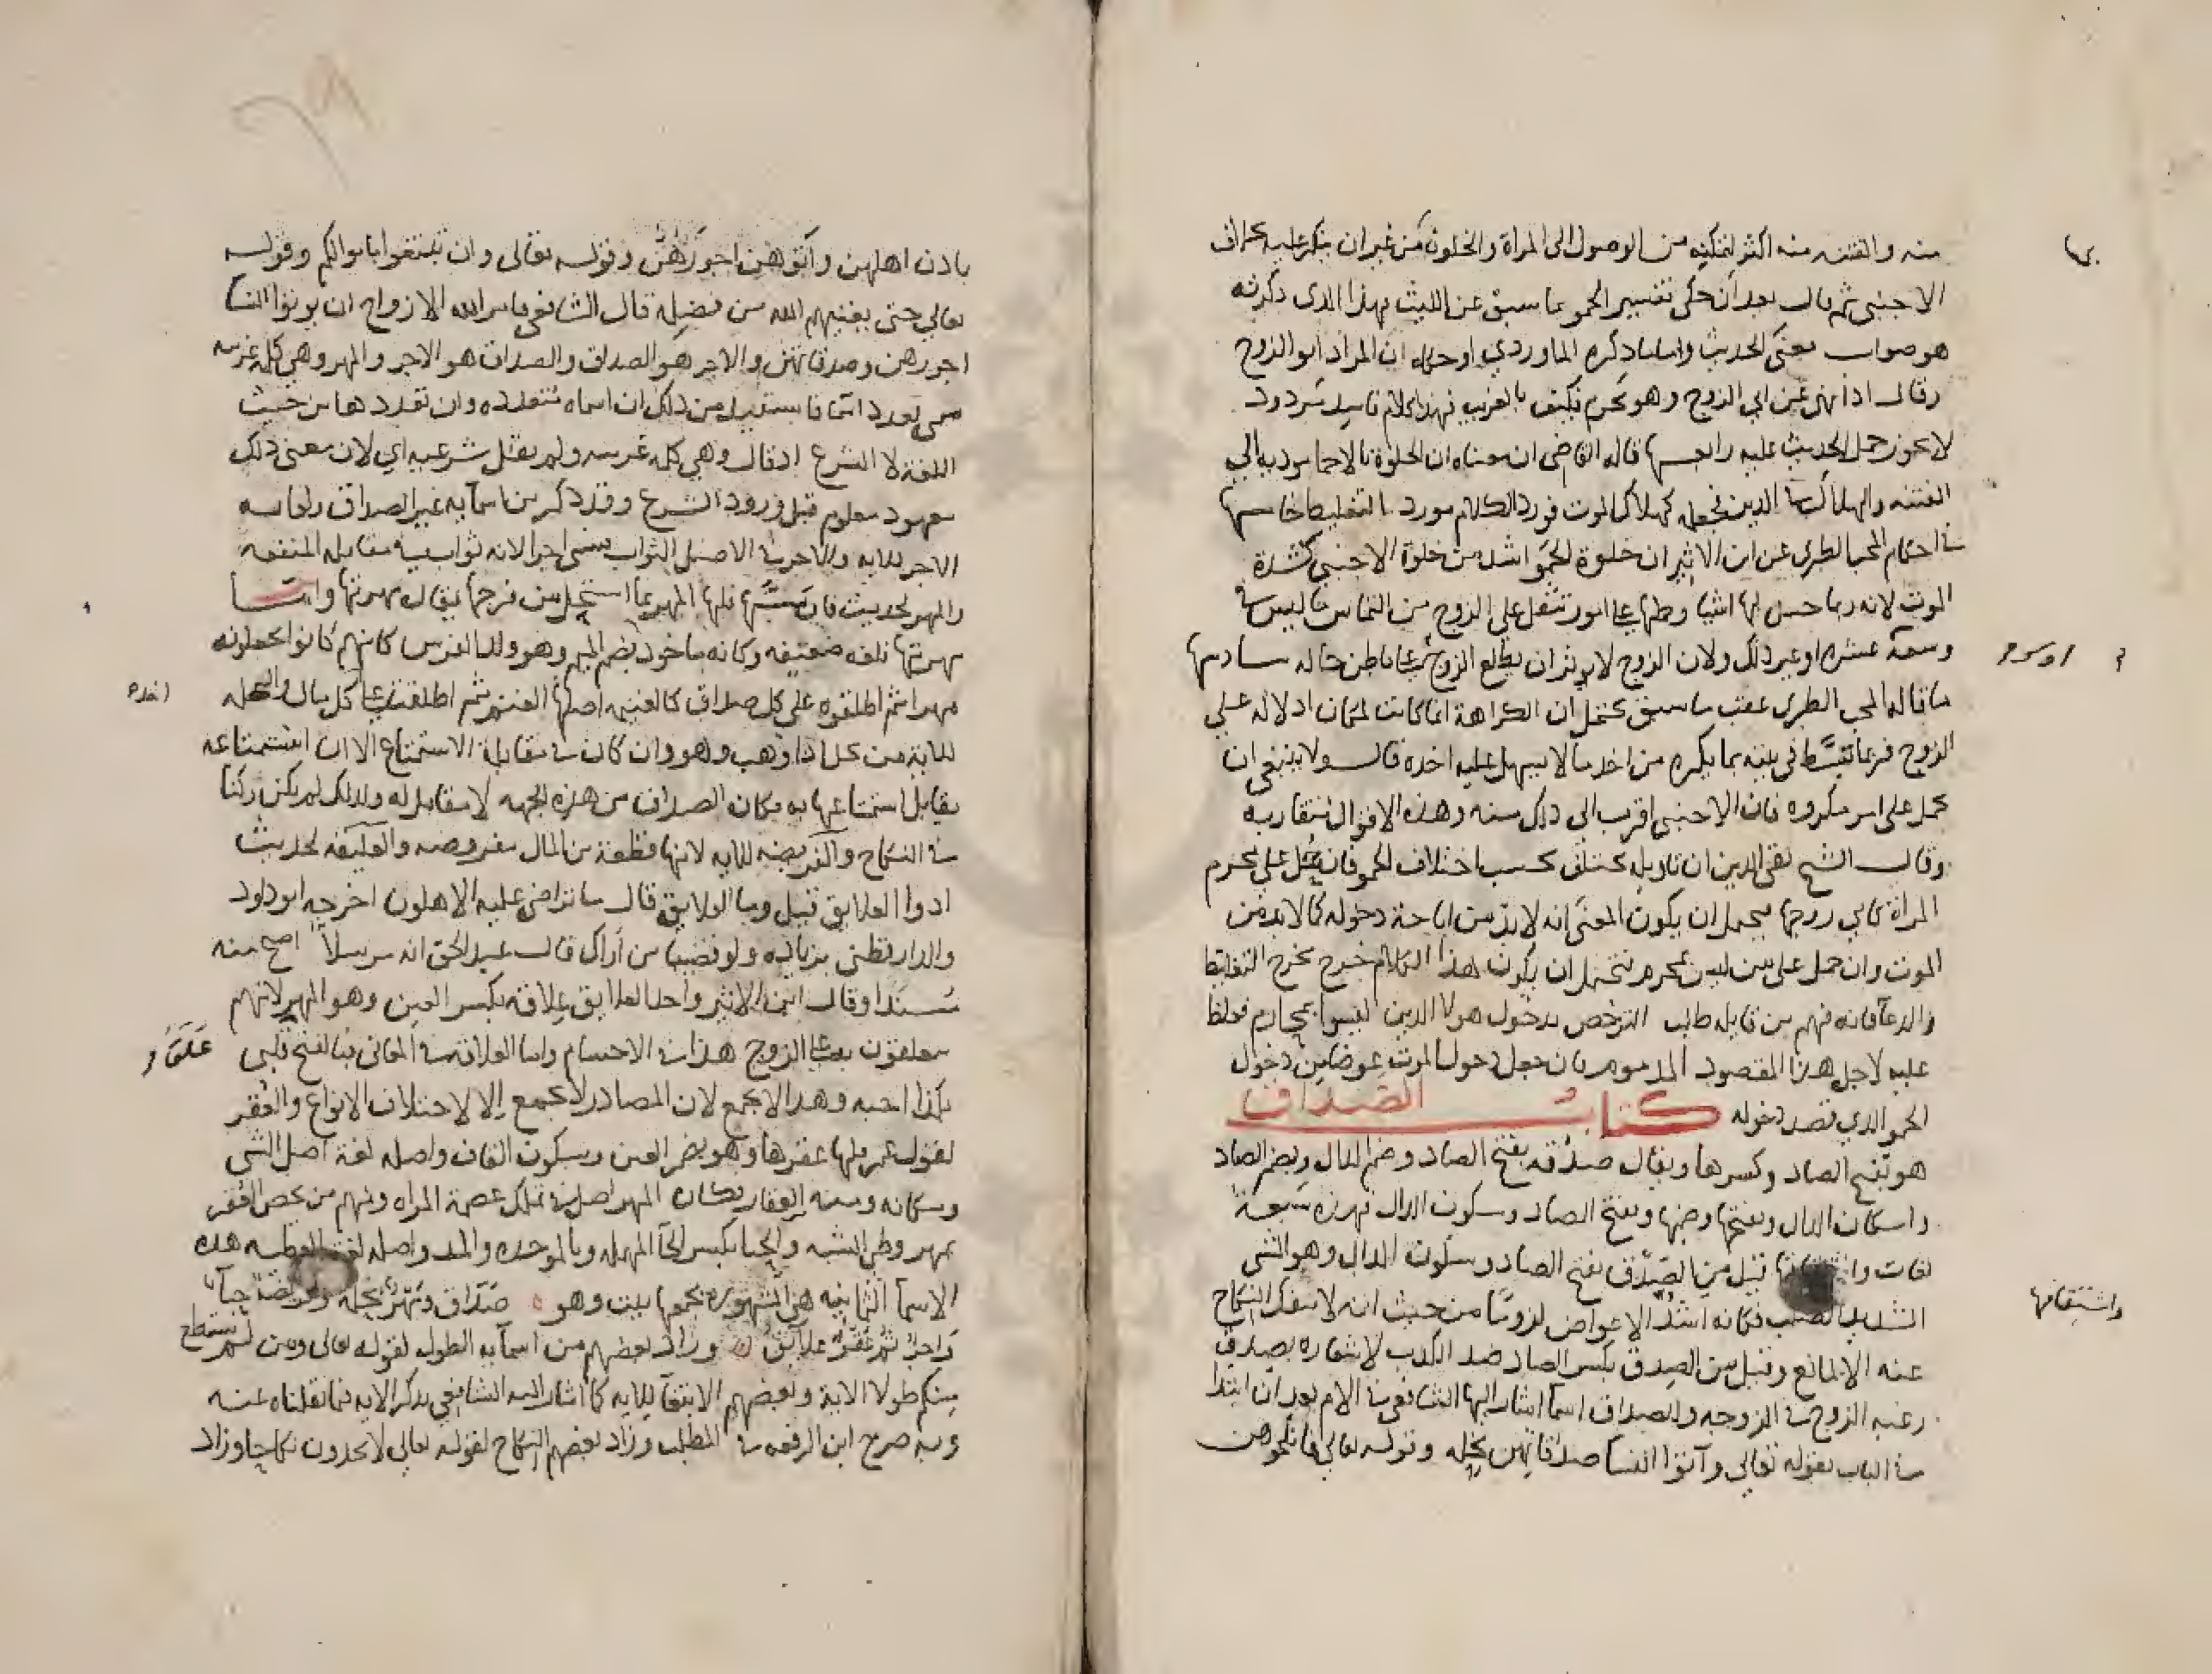 منه والفتنه منه اكثر لتمكنه من الوصول الى المراة والخلوة من غير ان ينكر عليه بخلاف
الاجنبي ثم قال بعد ان حكى تفسير الحمو بما سبق عن الليث بهذا الذي ذكرته
هو صواب معنى الحديث واما ما ذكره الماوردي او حكاه ان المراد ابو الزوج
وقال اذا نهي عن ابي الزوج وهو محرم فكيف بالغريب فهذا كلام فاسد مردود
لا يجوز حمل الحديث عليه رابعها قاله القاضي ان معناه ان الخلوة بالاحما موديه الى
الفتنه والهلاك في الدين فجعله كهلاك الموت فورد الكلام مورد التغليظ خامسها
في احكام المحب الطبري عن ابن الاثير ان خلوة الحمو اشد من خلوة الاجنبي كشدة
الموت لانه ربما حسن لها اشيا وحملها على امور تثقل على الزوج من التماس ما ليس في
وسعه عشره او غير ذلك ولان الزوج لا يوثر ان يطلع الزوج على باطن حاله سادسها
ما قاله المحب الطبري عقب ما سبق يحتمل ان الكراهة انما كانت لمكان ادلاله على
الزوج فربما تبسط في بيته بما يكره من اخذ ما لا يسهل عليه اخذه قال ولا ينبغي ان
يحمل على امر مكروه فان الاجنبي اقرب الى ذلك منه وهذه الاقوال متقاربه
وقال الشيخ تقي الدين ان تاويله يختلف بحسب اختلاف الحمو فان حمل على محرم
المراة كابي زوجها فيحتمل ان يكون المعنى انه لا بد من اباحة دخوله كما لا بد من
الموت وان حمل على من ليس بمحرم فيحتمل ان يكون هذا الكلام خرج مخرج التغليظ
والدعا فانه فهم من قايله طلب الترخص بدخول هولا الذين ليسوا بمحارم فغلظ
عليه لاجل هذا المقصود المذموم بان جعل دخول الموت عوضا من دخول
الحمو الذي قصد دخوله كتاب الصداق
هو بفتح الصاد وكسرها ويقال صدقه بفتح الصاد وضم الدال وبضم الصاد
واسكان الدال وبفتحها وضمها وبفتح الصاد وسكون الدال فهذه سبعة
لغات قيل من الصدق بفتح الصاد وسكون الدال وهو الشي
واشتقاقها
الشديد الصلب فكانه اشد الاعواض لزوما من حيث انه لا ينفك النكاح
عنه الا لمانع وقيل من الصدق بكسر الصاد ضد الكذب لاشعاره بصدق
رغبه الزوج في الزوجه وللصداق اسما اشار اليها الشافعي في الام بعد ان ابتدا
في الباب بقوله تعالى وآتوا النسا صدقاتهن نحله وقوله تعالى فانكحوهن
باذن اهلهن وآتوهن اجورهن وقوله تعالى وان تبتغوا باموالكم وقوله
تعالى حتى يغنيهم الله من فضله قال الشافعي فامر الله الازواج ان يوتوا النسا
اجورهن وصدقاتهن والاجر هو الصداق والصداق هو الاجر والمهر وهي كلمه عربيه
تسمى بعدد اسما فاستفيد من ذلك ان اسماه متعدده وان تعددها من حيث
اللغه لا الشرع اذ قال وهي كلمه عربيه ولم يقل شرعيه اي لان معنى ذلك
معهود معلوم قبل ورود الشرع وقد ذكر من اسمايه غير الصداق ولغاته
الاجر للايه والاجر في الاصل الثواب سمى اجرا لانه ثواب في مقابله المنفعه
والمهر لحديث فان مسها فلها المهر بما استحل من فرجها يقال مهرتها واما
مهرتها فلغه ضعيفه وكانه ماخوذ بضم الميم وهو ولد الفرس كانهم كانوا يجعلونه
مهرا ثم اطلقوه على كل صداق كالغنيه اصلها الغنم ثم اطلقت على كل مال والنحله
للايه من نحل اذا وهب وهو وان كان في مقابلة الاستمتاع الا ان استمتاعه
يقابل استمتاعها به فكان الصداق من هذه الجهه لا مقابل له ولذلك لم يكن ركنا
في النكاح والفريضه للايه لانها قطعة من المال مفروضه والعليقه لحديث
ادوا العلايق قيل وما العلايق قال ما تراضى عليه الاهلون اخرجه ابو داود
والدارقطني بزياده ولو قضيبا من اراك قال عبد الحق انه مرسلا اصح منه
مسندا وقال ابن الاثير واحد العلايق علاقه بكسر العين وهو المهر لانهم
يتعلقون به على الزوج هذا في الاجسام واما العلاقه في المعاني فبالفتح قلبي
بكذا احبه وهذا لا يجمع لان المصادر لا تجمع الا لاختلاف الانواع والعقر
لقول عمر فلها عقرها وهو بضم العين وسكون القاف واصله لغة اصل الشي
ومكانه ومنه العقار فكان المهر اصل في تملك عصمة المراه ومنهم من يخص العقر
بمهر وطي الشبه والحبا بكسر الحآ المهمله وبالموحده والمد واصله لغة العطيه هذه
الاسما الثمانيه هي المشهوره يجمعها بيت وهو صداق ومهر نحله وفريضة حبآ
واجر ثم عقر علآئق وزاد بعضهم من اسمآيه الطول لقوله تعالى ومن لم يستطع
منكم طولا الاية وبعضهم الابتغآ للايه كما اشار اليه الشافعي بذكر الايه فيما نقلناه عنه
وبه صرح ابن الرفعه في المطلب وزاد بعضهم النكاح لقوله تعالى لا يجدون نكاحا وزاد